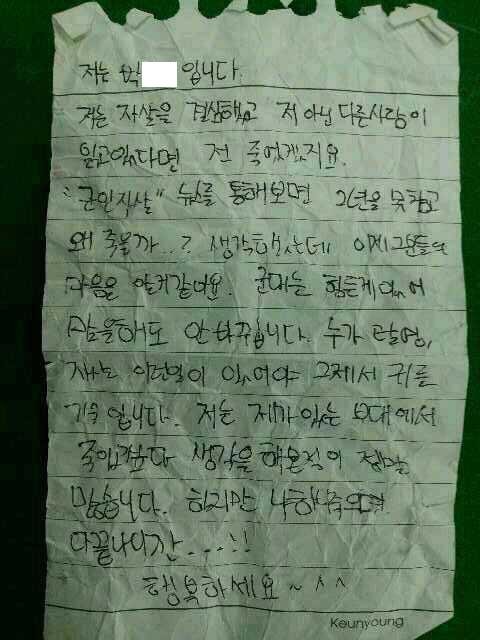 저는 박 입니다.
저는 자살을 결심했고 저 아닌 다른사람이
읽고있다면 전 죽었겠지요.
"군인자살" 뉴스를 통해보면 2년을 못참고
왜 죽을까..? 생각했는데 이제 그분들의
마음을 알거같아요. 군대는 힘든게있어
말을해도 안바뀝니다. 누가 탈영,
자살 이런일이 있어야 그제서 귀를
기울입니다. 저는 제가있는 부대에서
죽고싶다 생각을 해본적이 정말
많습니다. 하지만 나하나죽으면
다끝나니깐...!!
행복하세요~^^
Keunyoung